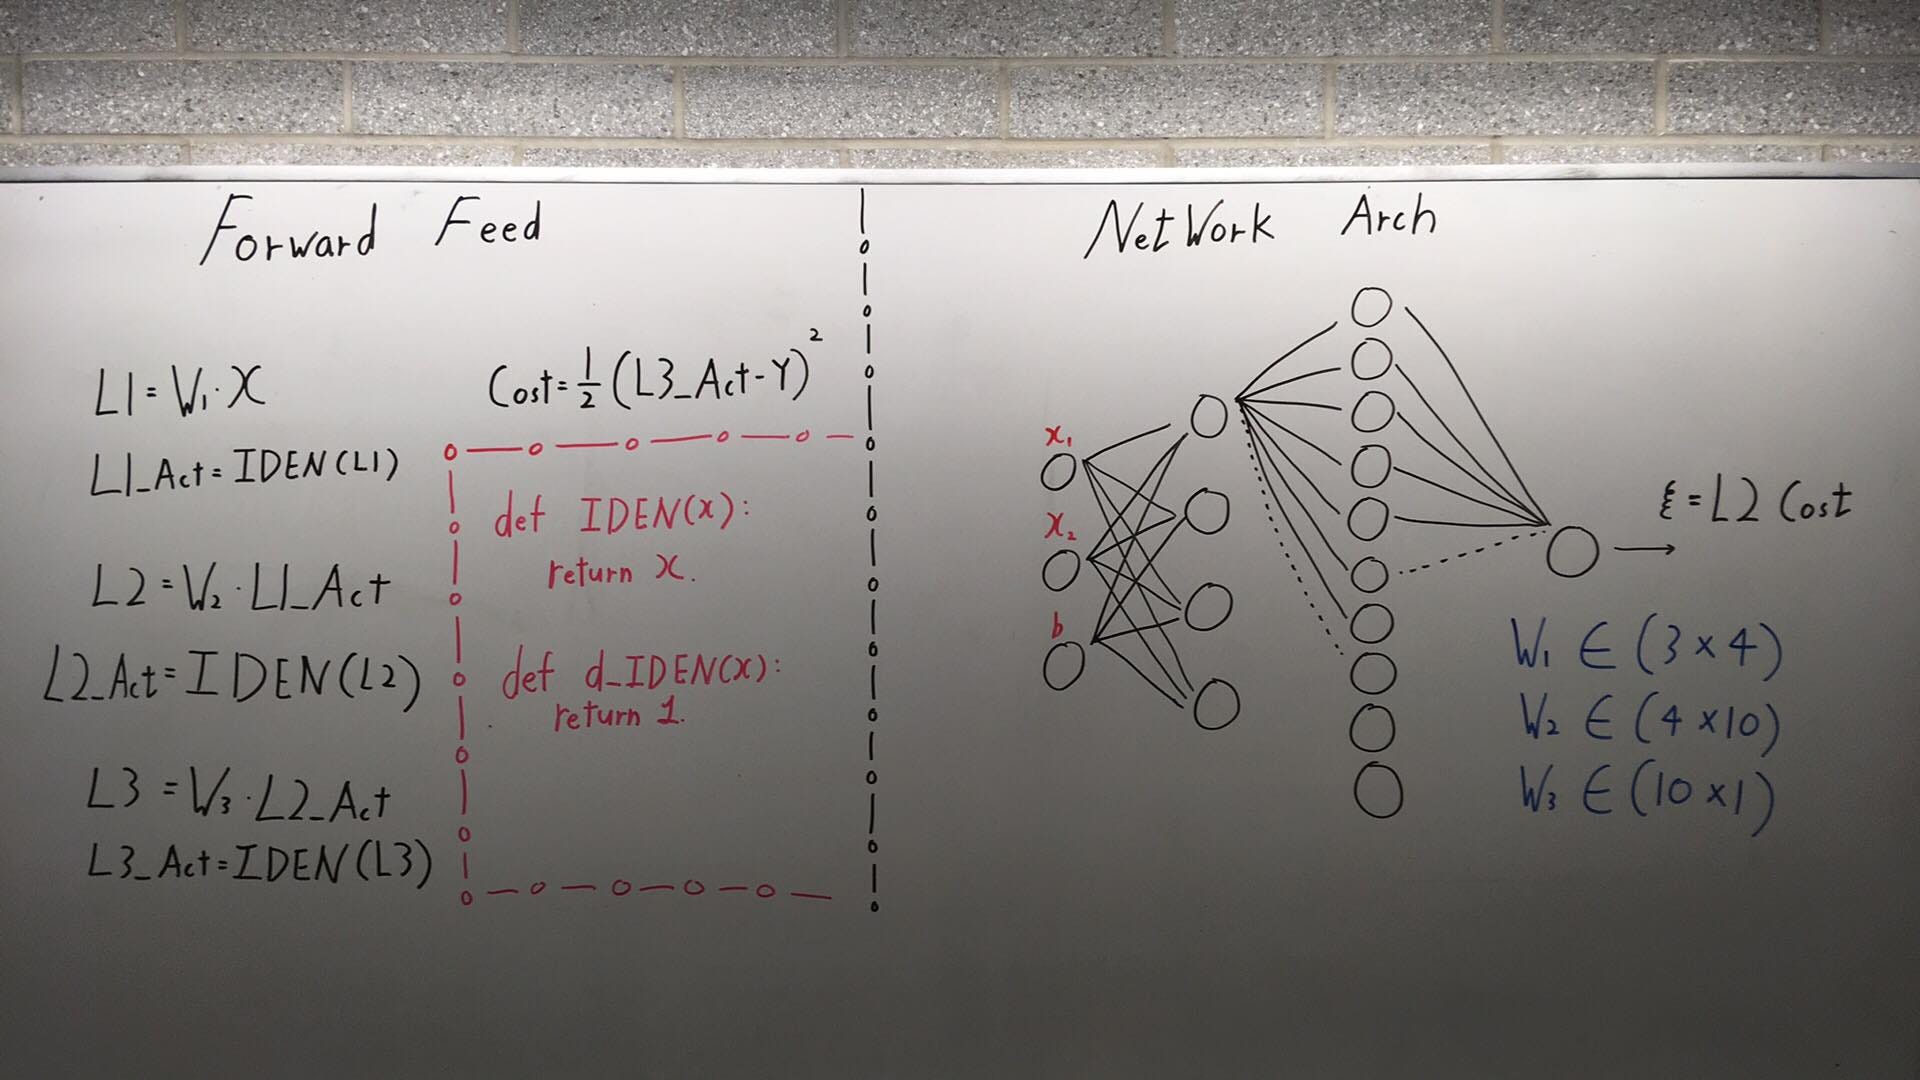 Forward Feed
L1 = W₁·X
L1_Act = IDEN(L1)
L2 = W₂·L1_Act
L2_Act = IDEN(L2)
L3 = W₃·L2_Act
L3_Act = IDEN(L3)
Cost = ½ (L3_Act - Y)²
def IDEN(x):
return x.
def d_IDEN(x):
return 1.
NetWork Arch
x₁
x₂
b
ξ = L2 Cost
W₁ ∈ (3 × 4)
W₂ ∈ (4 × 10)
W₃ ∈ (10 × 1)